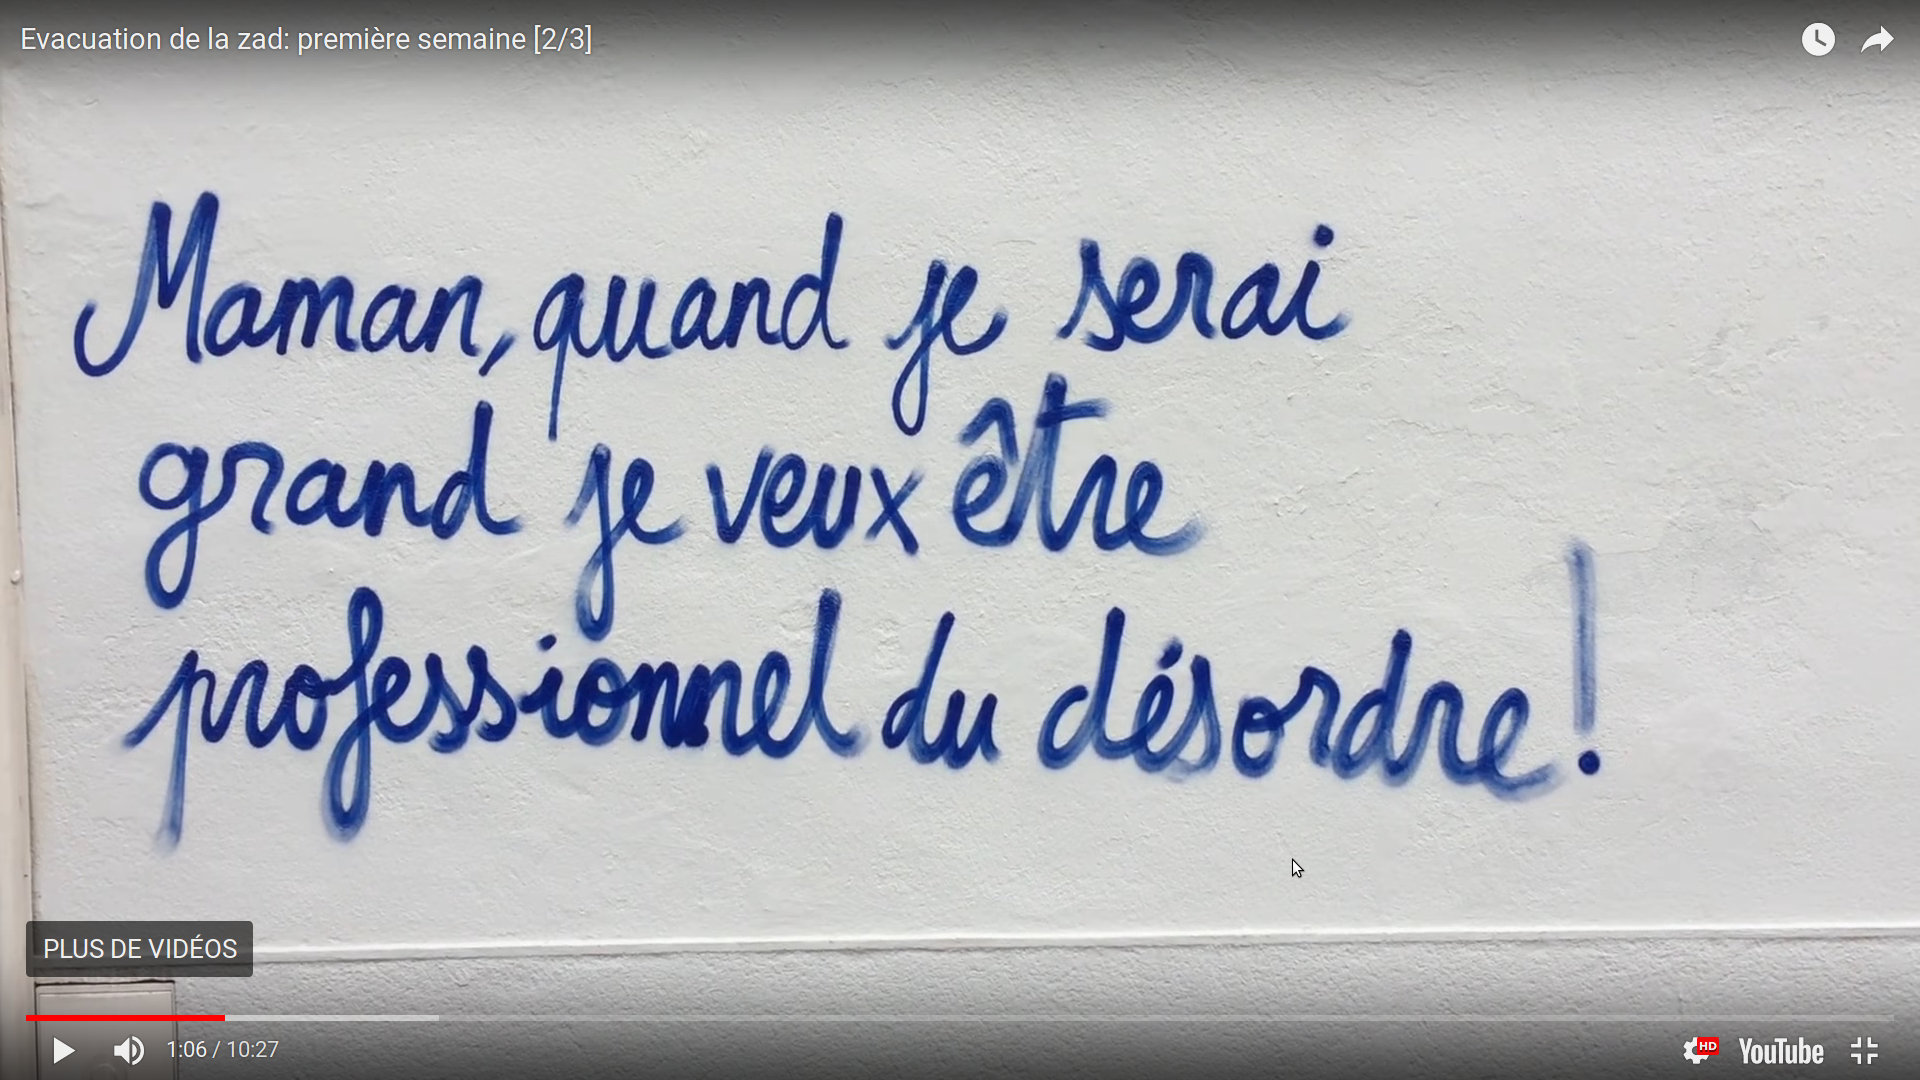 Evacuation de la zad: première semaine [2/3]
Maman, quand je serai
grand je veux être
professionnel du désordre!
PLUS DE VIDÉOS
1:06 / 10:27
HD
YouTube